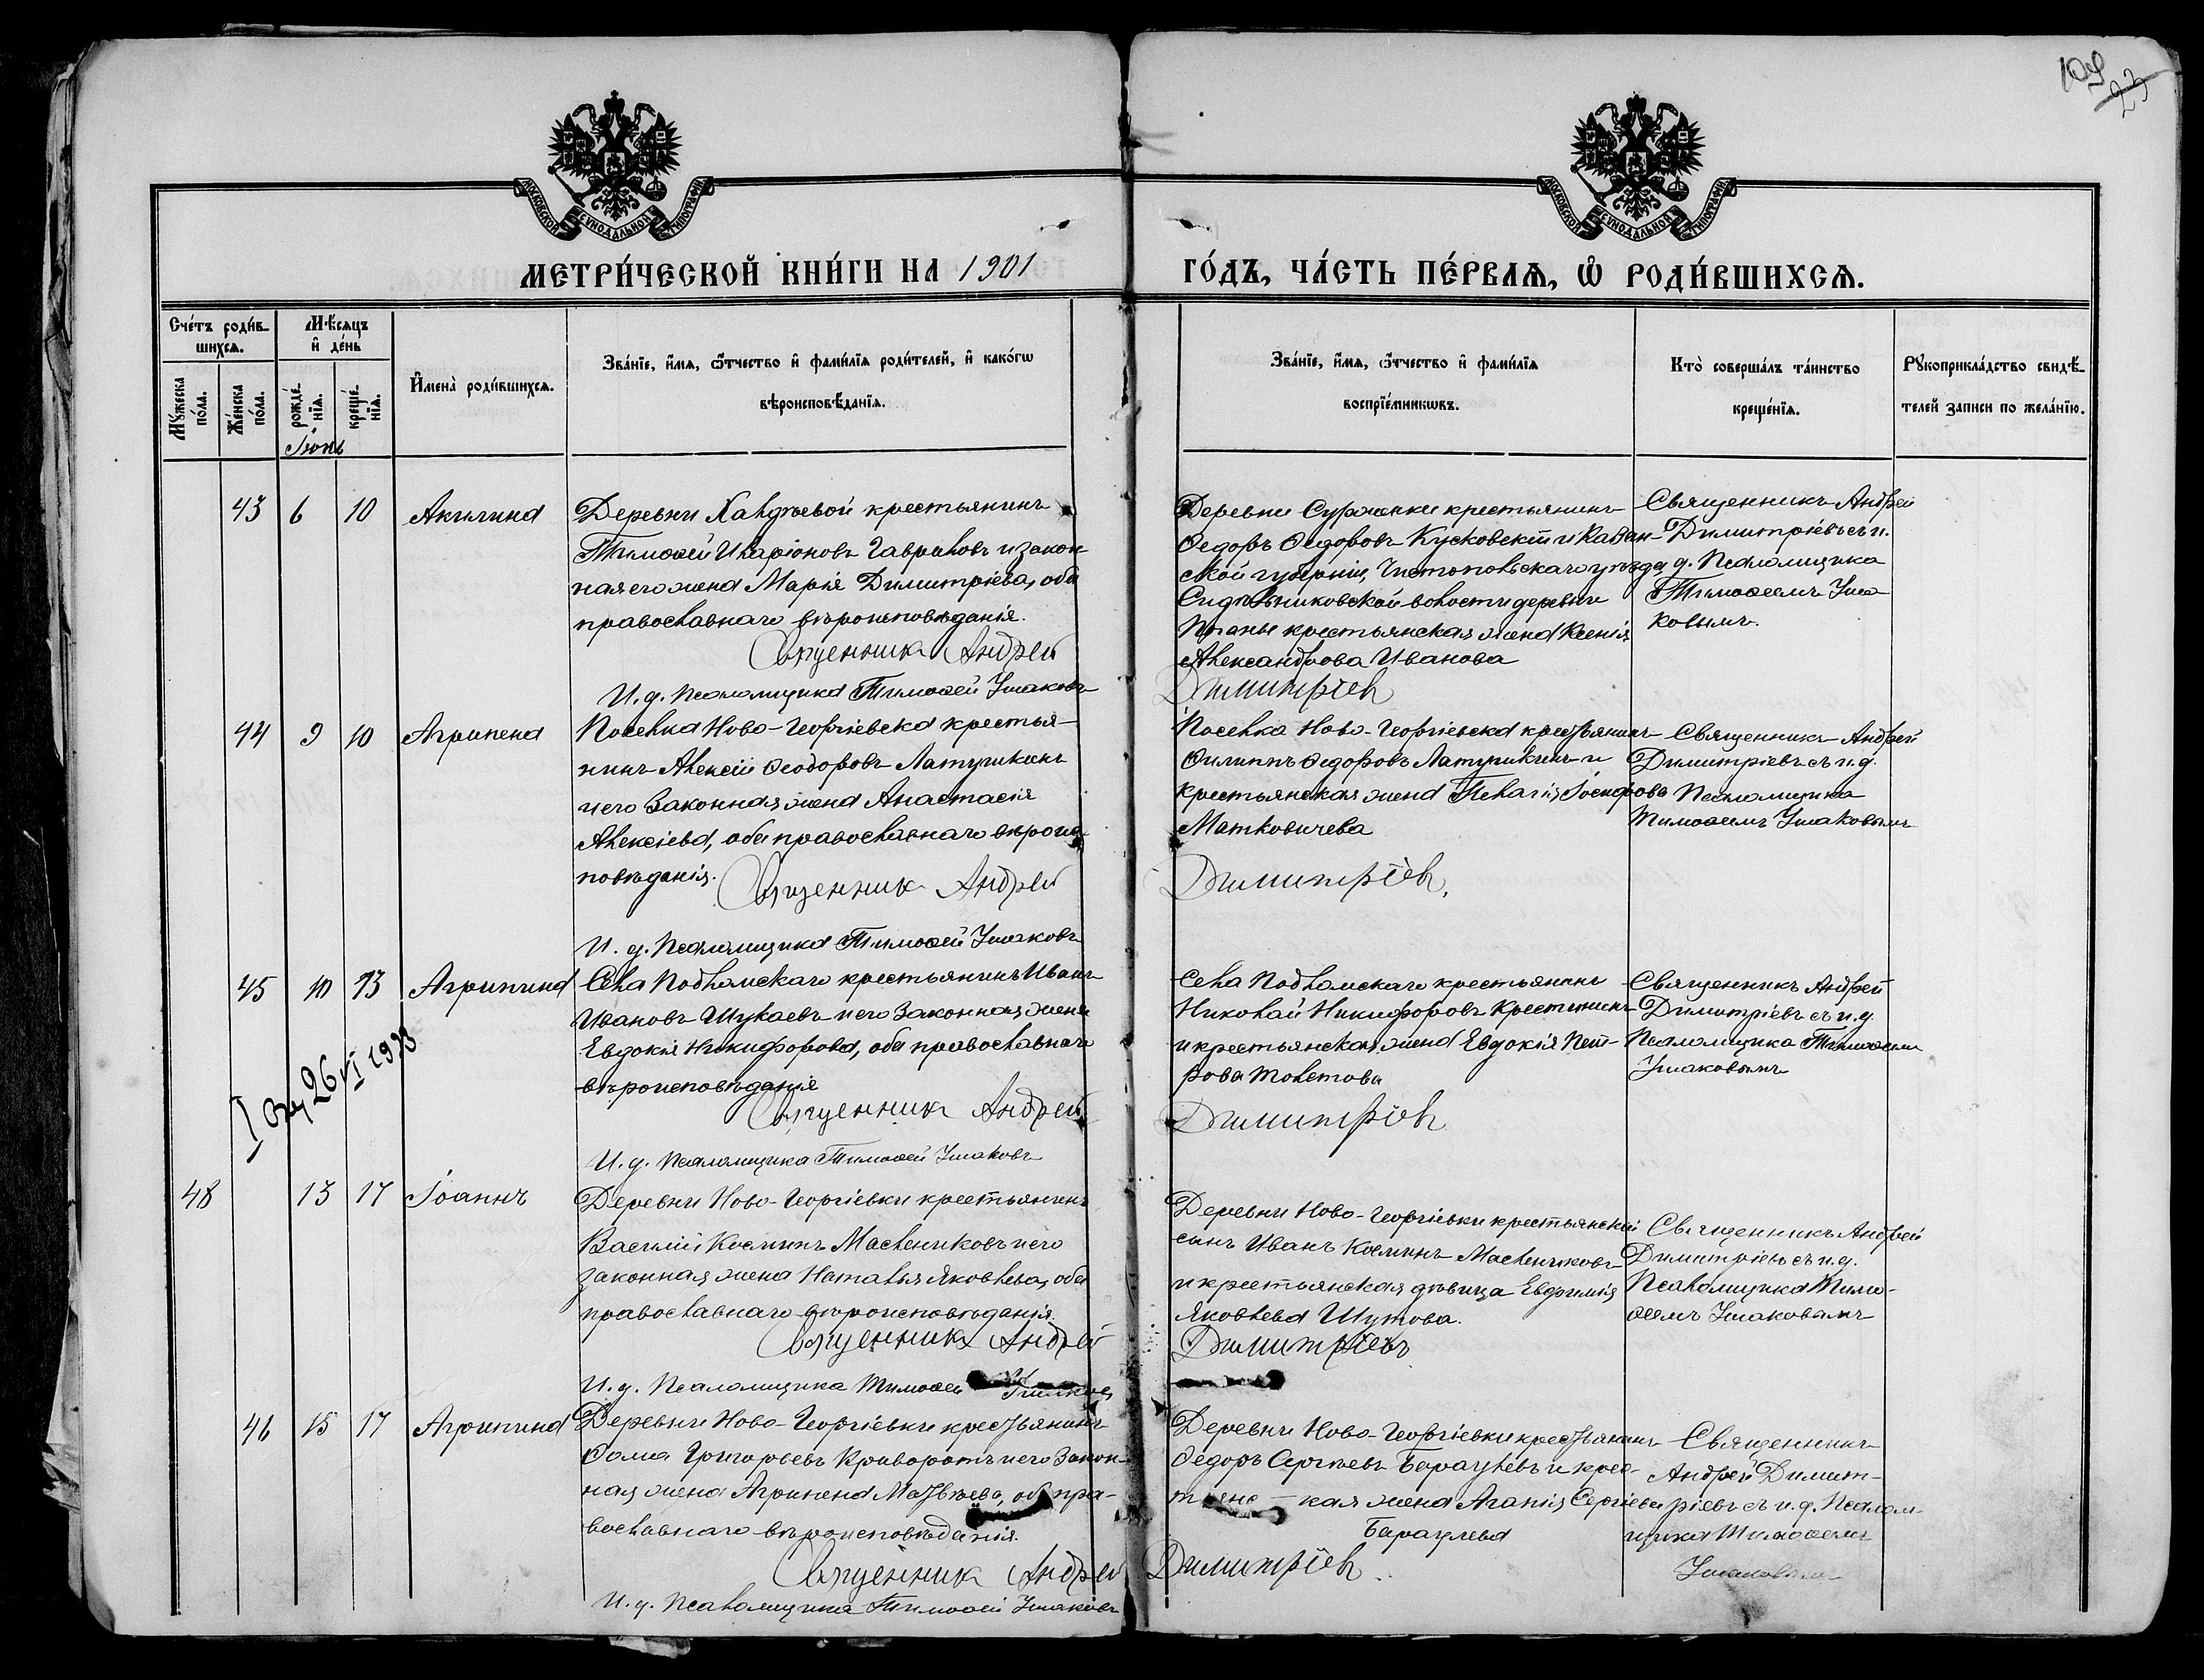 109
23
МОСКОВСКОЙ СѴНОДАЛЬНОЙ ТИПОГРАФІИ
МОСКОВСКОЙ СѴНОДАЛЬНОЙ ТИПОГРАФІИ
МЕТРИ́ЧЕСКОЙ КНИ́ГИ НА 1901 ГО́ДЪ, ЧА́СТЬ ПЕ́РВАѦ, Ѡ҆ РОДИ́ВШИХСѦ.
Сче́тъ роди́в-
шихсѧ.
Мꙋ́жеска по́ла.
Же́нска по́ла.
Мѣ́сѧцъ
и҆ де́нь
рожде́-
нїѧ.
креще́-
нїѧ.
И҆мена̀ роди́вшихсѧ.
Зва́нїе, и҆́мѧ, ѻ҆́тчество и҆ фами́лїѧ роди́телей, и҆ како́гѡ
вѣроисповѣ́данїѧ.
Зва́нїе, и҆́мѧ, ѻ҆́тчество и҆ фами́лїѧ
воспрїе́мникѡвъ.
Кто̀ соверша́лъ та́инство
креще́нїѧ.
Рꙋкоприкла́дство свидѣ́-
телей записи по жела́нїю.
Іюнь
43 6 10 Акилина
Деревни Хандѣевой крестьянинъ
Тимоѳей Иларіоновъ Гавриловъ и закон-
ная его жена Марія Димитріева, оба
православнаго вѣроисповѣданія.
Священникъ Андрей Димитріевъ
И. д. Псаломщика Тимоѳей Ушаковъ
Деревни Суражевки крестьянинъ
Ѳедоръ Ѳедоровъ Кусковскій и Казан-
ской губерніи, Чистопольскаго уѣзда,
Сидѣльниковской волости деревни
крестьянская жена Ксенія
Александрова Иванова
Священникъ Андрей
Димитріевъ съ и.
д. Псаломщика
Тимоѳеемъ Уша
ковымъ.
44 9 10 Агрипена
Поселка Ново-Георгіевска крестья-
нинъ Алексій Ѳеодоровъ Латушкинъ
и его законная жена Анастасія
Алексіева, оба православнаго вѣроис-
повѣданія.
Священникъ Андрей Димитріевъ
И. д. Псаломщика Тимоѳей Ушаковъ
Поселка Ново-Георгіевска крестьянинъ
Филиппъ Ѳедоровъ Латушкинъ и
крестьянская жена Пелагія Іосифова
Матковичева
Священникъ Андрей
Димитріевъ съ и. д.
Псаломщика
Тимоѳеемъ Ушаковымъ
45 10 13 Агрипина
Села Подломскаго крестьянинъ Иванъ
Ивановъ Шукаевъ и его законная жена
Евдокія Никифорова, оба православнаго
вѣроисповѣданія
Священникъ Андрей Димитріевъ
И. д. Псаломщика Тимоѳей Ушаковъ
Села Подломскаго крестьянинъ
Николай Никифоровъ Крестининъ
и крестьянская жена Евдокія Пет-
рова Толстова
Священникъ Андрей
Димитріевъ съ и. д.
Псаломщика Тимоѳеемъ
Ушаковымъ
26 VI 1973
48 13 17 Іоаннъ
Деревни Ново-Георгіевки крестьянинъ
Василій Косминъ Маслениковъ и его
законная жена Наталья Яковлева, оба
православнаго вѣроисповѣданія.
Священникъ Андрей Димитріевъ
И. д. Псаломщика Тимоѳей Ушаковъ
Деревни Ново-Георгіевки крестьянскій
сынъ Иванъ Косминъ Маслениковъ
и крестьянская дѣвица Евфимія
Яковлева Шутова.
Священникъ Андрей
Димитріевъ съ и. д.
Псаломщика Тимо-
ѳеемъ Ушаковымъ
46 15 17 Агрипина
Деревни Ново-Георгіевки крестьянинъ
Ѳома Григорьевъ Криворотъ и его закон-
ная жена Агрипена Матвѣева, оба пра-
вославнаго вѣроисповѣданія.
Священникъ Андрей Димитріевъ
И. д. Псаломщика Тимоѳей Ушаковъ
Деревни Ново-Георгіевки крестьянинъ
Ѳедоръ Сергѣевъ Бараулевъ и крес-
тьянс-кая жена Агапія Сергіева
Бараулева
Священникъ
Андрей Димит-
ріевъ съ и. д. Псалом
щика Тимоѳеемъ
Ушаковымъ